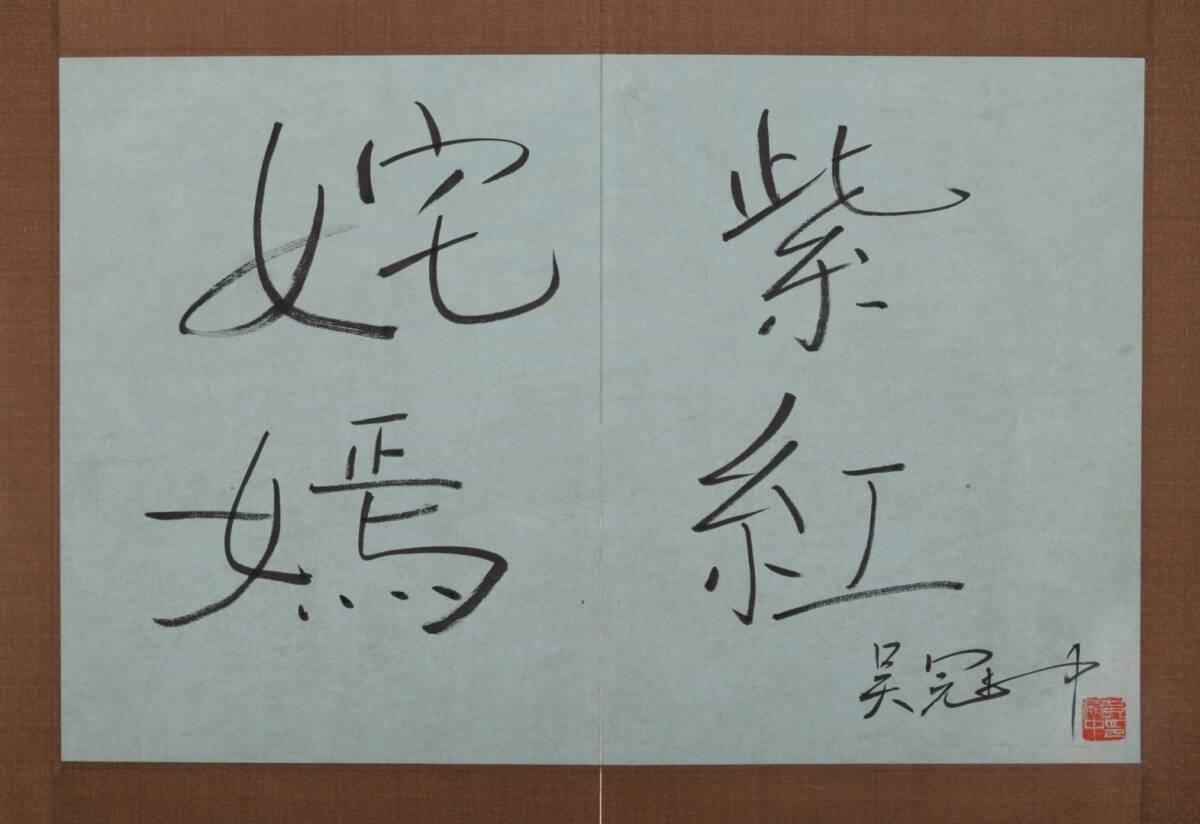 姹紫
嫣紅
吴冠中